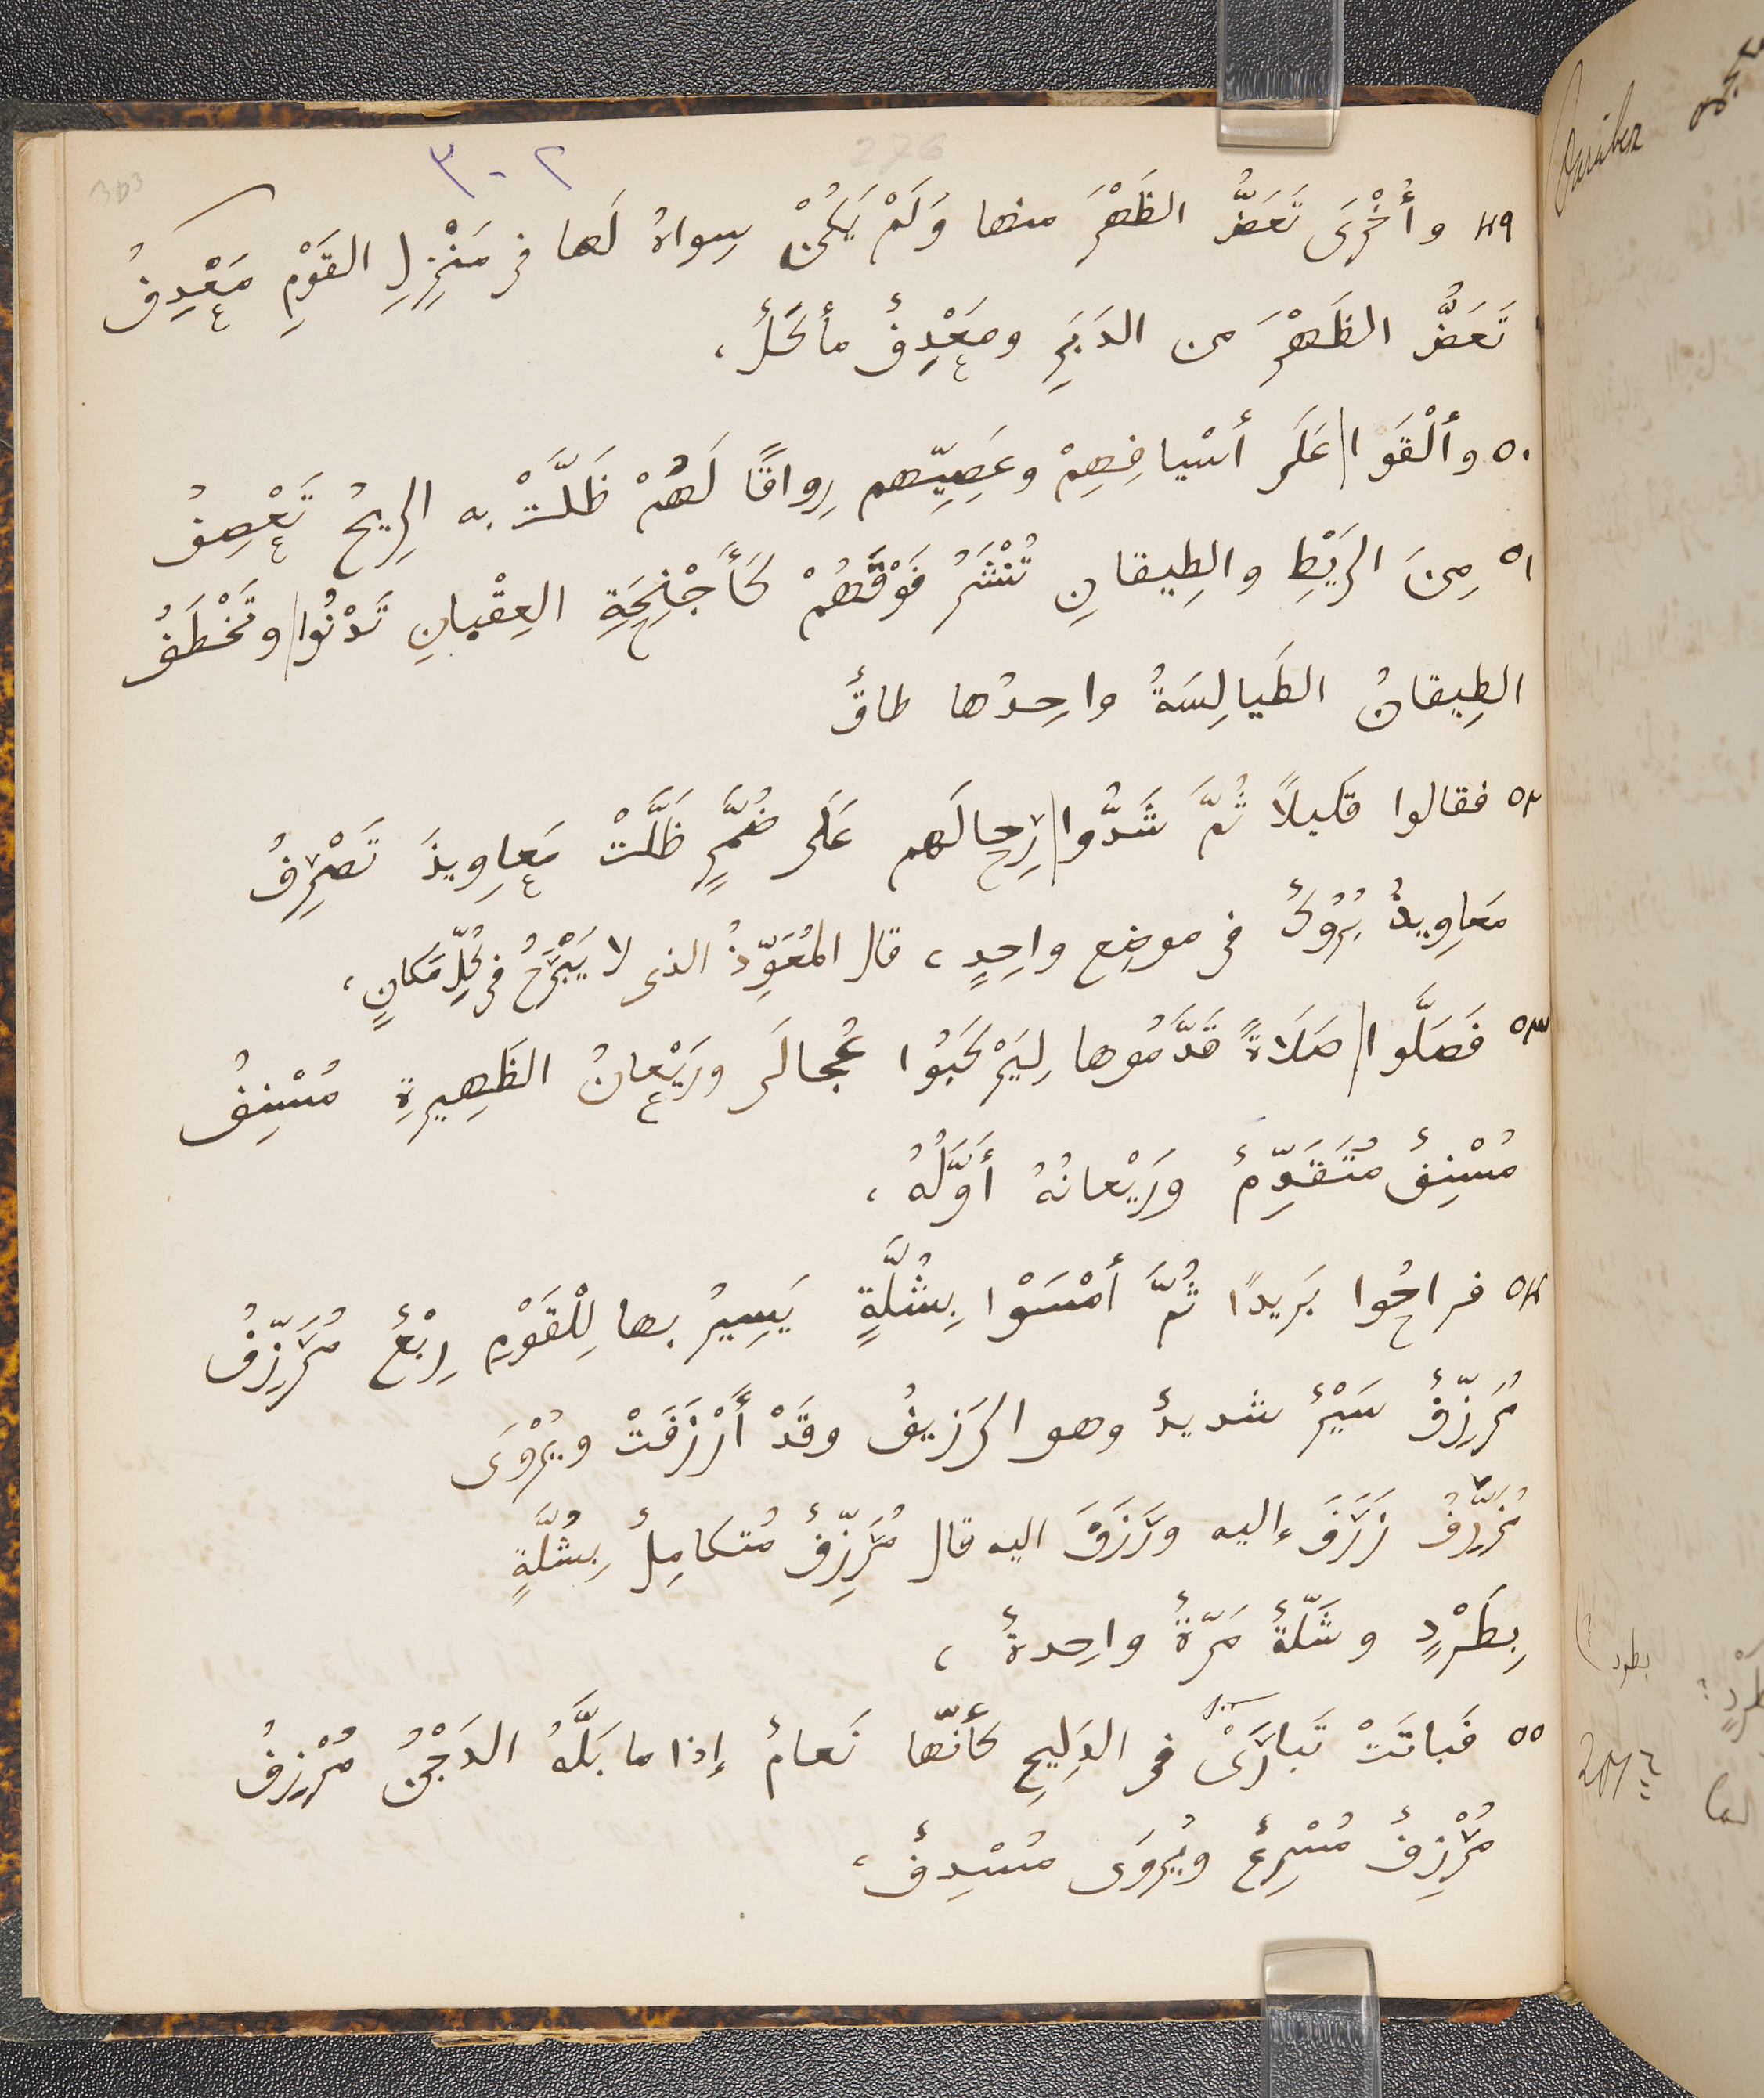 ٣٠٢
276
303
٤٩ وأُخْرَى تَعَضُّ الظَهْرَ منها وَلَمْ يَكُنْ سِواهُ لَها فى مَنْزِلِ القَوْمِ مَعْدِفُ
تَعَضُّ الظَهْرَ من الدَبَرِ ومَعْدِفٌ مأكَلٌ،
٥٠ وألْقَوا عَلَى أسْيافِهِمْ وعَصِيِّهم رِواقًا لَهُمْ ظَلَّتْ به الرِيحُ تَعْصِفُ
٥١ مِنَ الرَيْطِ والطِيقانِ تُنْشَرُ فَوْقَهُمْ كَأَجْنِحَةِ العِقْبانِ تَدْنُوا وتَخْطَفُ
الطِيقانُ الطَيالِسَةُ واحِدُها طاقٌ
٥٢ فقالوا قَليلًا ثُمَّ شَدُّوا رِحالَهم عَلَى ضُمَّرٍ ظَلَّتْ مَعاوِيذَ تَصْرِفُ
مَعاوِيذُ بُرُوكٌ فى موضِع واحِدٍ، قال المُعَوِّذُ الذى لا يَبْرَحُ فى كُلِّ مَكانٍ،
٥٣ فَصَلَّوا صَلَاةً قَدَّمُوها لِيَرْكَبُوا عُجالَى ورَيْعانُ الظَهِيرةِ مُسْنِفُ
مُسْنِفٌ مُتَقَدِّمٌ ورَيْعانُهُ أَوَّلُهُ،
٥٤ فراحُوا بَريدًا ثُمَّ أمْسَوْا بِشُلَّةٍ يَسِيرُ بها لِلْقَوْمِ رِبْعٌ مُرَزِّفُ
مُرَزِّفٌ سَيْرٌ شديدٌ وهو الرَزيفُ وقَدْ أَرْزَفَتْ ويُرْوَى
مُزَرِّفُ زَرَفَ إليه ورَزَفَ اليه قال مُرَزِّفٌ مُتكامِلٌ بِشُلَّةٍ
بِطَرْدٍ وشَلّةٌ مَرّةٌ واحِدةٌ،
٥٥ فَباتَتْ تَبارَى فى الدَلِيجِ كأنّها نَعامٌ إذا ما بَلَّهُ الدَجْنُ مُرْزِفُ
مُرْزِفٌ مُسْرِعٌ ويُروَى مُسْدِفٌ،